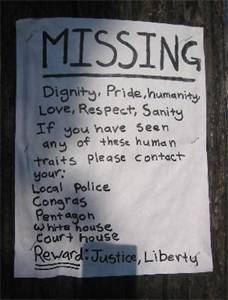 MISSING
Dignity, Pride, humanity,
Love, Respect, Sanity
If you have seen
any of these human
traits please contact
your:
Local Police
Congras
Pentagon
White house
Court house
Reward: Justice, Liberty